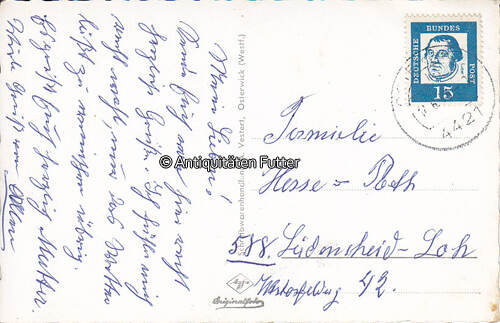 Meine Lieben!
Sende Euch von hier aus
herzliche Grüße. Ich fühle mich
sehr wohl, nur das Wetter
läßt zu wünschen übrig.
Es grüßt Euch herzlich Mutter.
Viele Grüße von
Schreibwarenhandlung Vestert, Osterwick (Westf.)
© Antiquitäten Futter
DEUTSCHE BUNDES POST
15
4421
Familie
Hesse - Roth
588 Lüdenscheid-Loh
42.
Agfa
Originalfoto